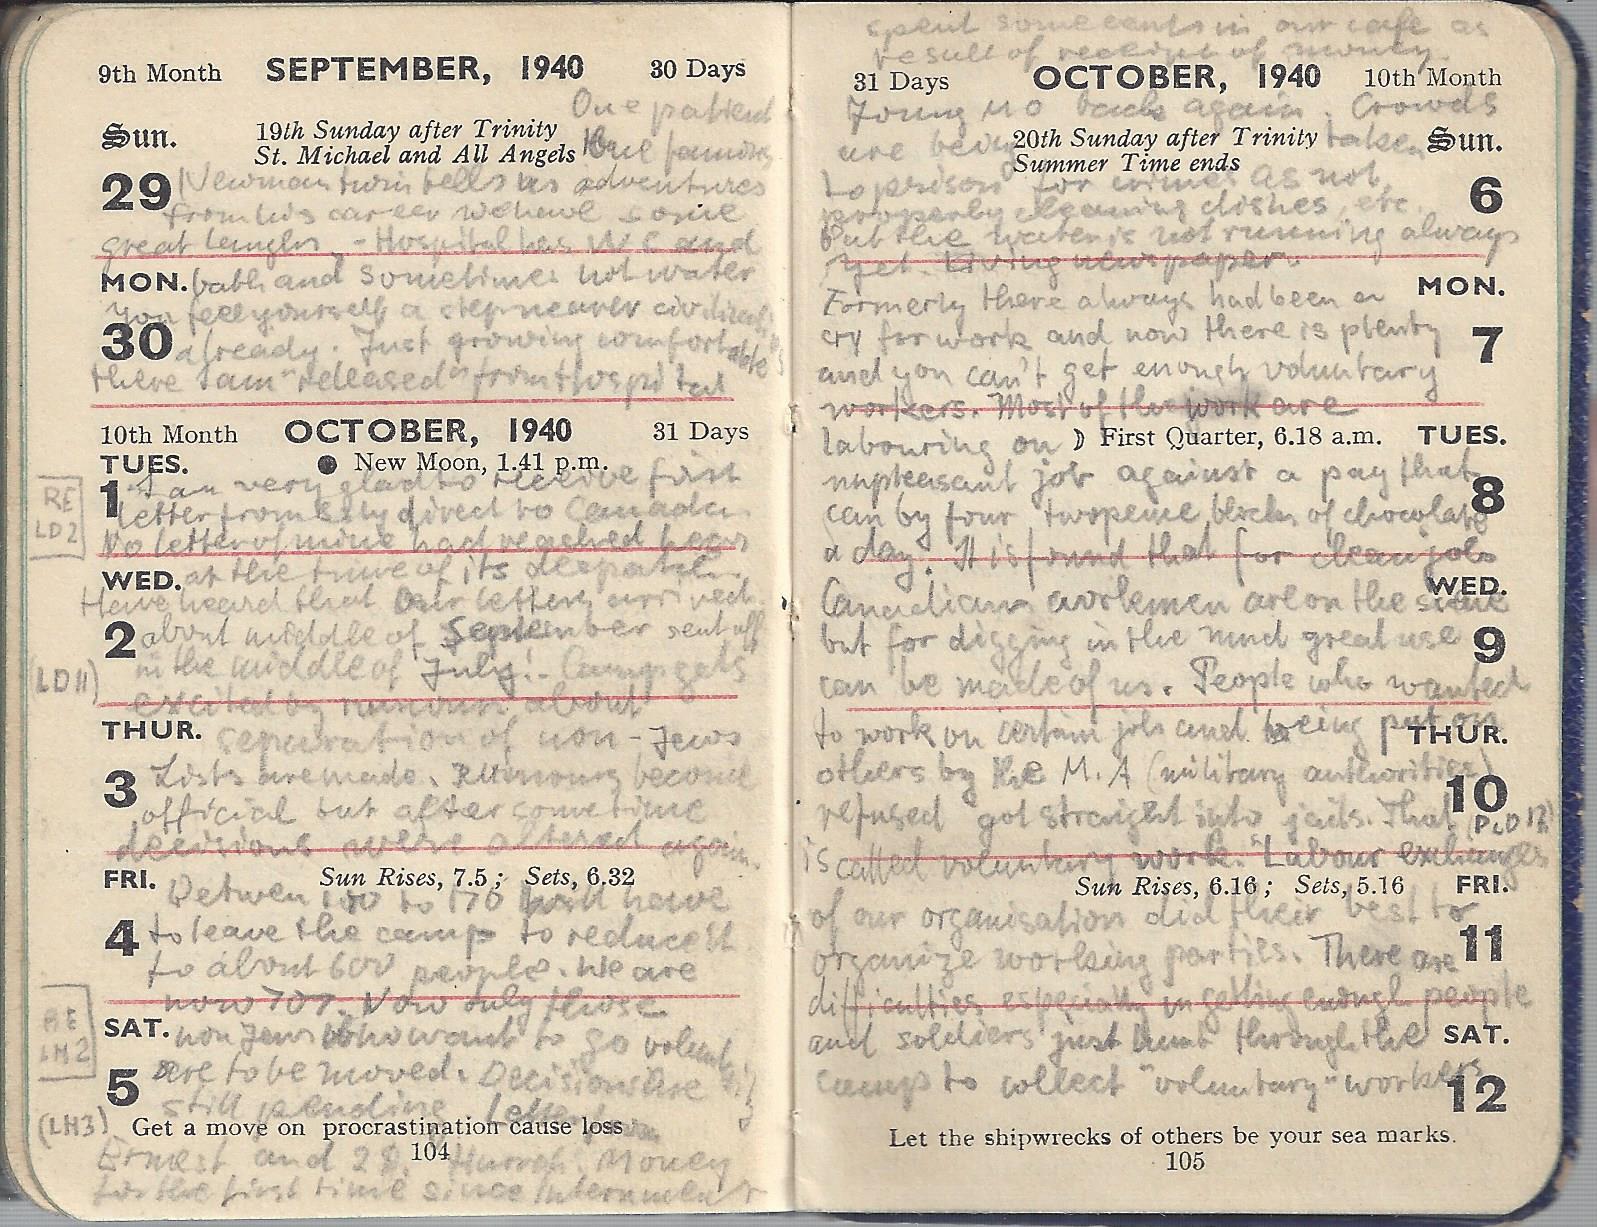 9th Month SEPTEMBER, 1940 30 Days
One patient
Sun. 19th Sunday after Trinity
St. Michael and All Angels
29 Newman twin tells us adventures
from his career we have some
great laughs. - Hospital has W C and
MON. bath and sometimes hot water
you feel yourself a step nearer
30 already. Just growing comfortable
there I am "released" from Hospital
10th Month OCTOBER, 1940 31 Days
TUES. ● New Moon, 1.41 p.m.
RE
LD2
1 I am very glad to receive first
letter from direct to Canada.
No letter of mine had reached
WED. at the time of its
Have heard that our letters arrived
2 about middle of September sent off
(LD11) in the middle of July! - Camp gets
excited by rumours about
THUR. separation of non-Jews
3 Lists are made. Rumours become
official but after some time
decisions were altered again.
FRI. Sun Rises, 7.5; Sets, 6.32
Betwen 100 to 170 will have
4 to leave the camp to reduce it
to about 600 people. We are
now 707. Now only those
RE
LM2
SAT. non Jews who want to go
5 are to be moved. Decisions are
still pending. Letter from
(LH3) Get a move on procrastination cause loss
104
Ernest and 2 $. Hurrah. Money
for the first time since Internment
spent some cents in our cafe as
result of receipt of money.
31 Days OCTOBER, 1940 10th Month
Young no back again. Crowds
are being taken
20th Sunday after Trinity Sun.
Summer Time ends
to prison for crimes as not 6
properly cleaning dishes, etc.
but the water is not running always
yet. Living newspaper.
Formerly there always had been a MON.
cry for work and now there is plenty 7
and you can't get enough voluntary
workers. Most of the work are
labouring on ☽ First Quarter, 6.18 a.m. TUES.
unpleasant job against a pay that 8
can by four twopence blocks of chocolate
a day. It is found that for clean jobs
WED.
Canadian workmen are on the scene
but for digging in the mud great use 9
can be made of us. People who wanted
to work on certain jobs and being put on THUR.
others by the M.A (military authorities) 10
refused got straight into jails. That (PLD12)
is called voluntary work. "Labour exchanges
Sun Rises, 6.16; Sets, 5.16 FRI.
of our organisation did their best to
organize working parties. There are 11
difficulties especially in getting enough people
and soldiers just hunt through the SAT.
camp to collect "voluntary" workers 12
Let the shipwrecks of others be your sea marks.
105